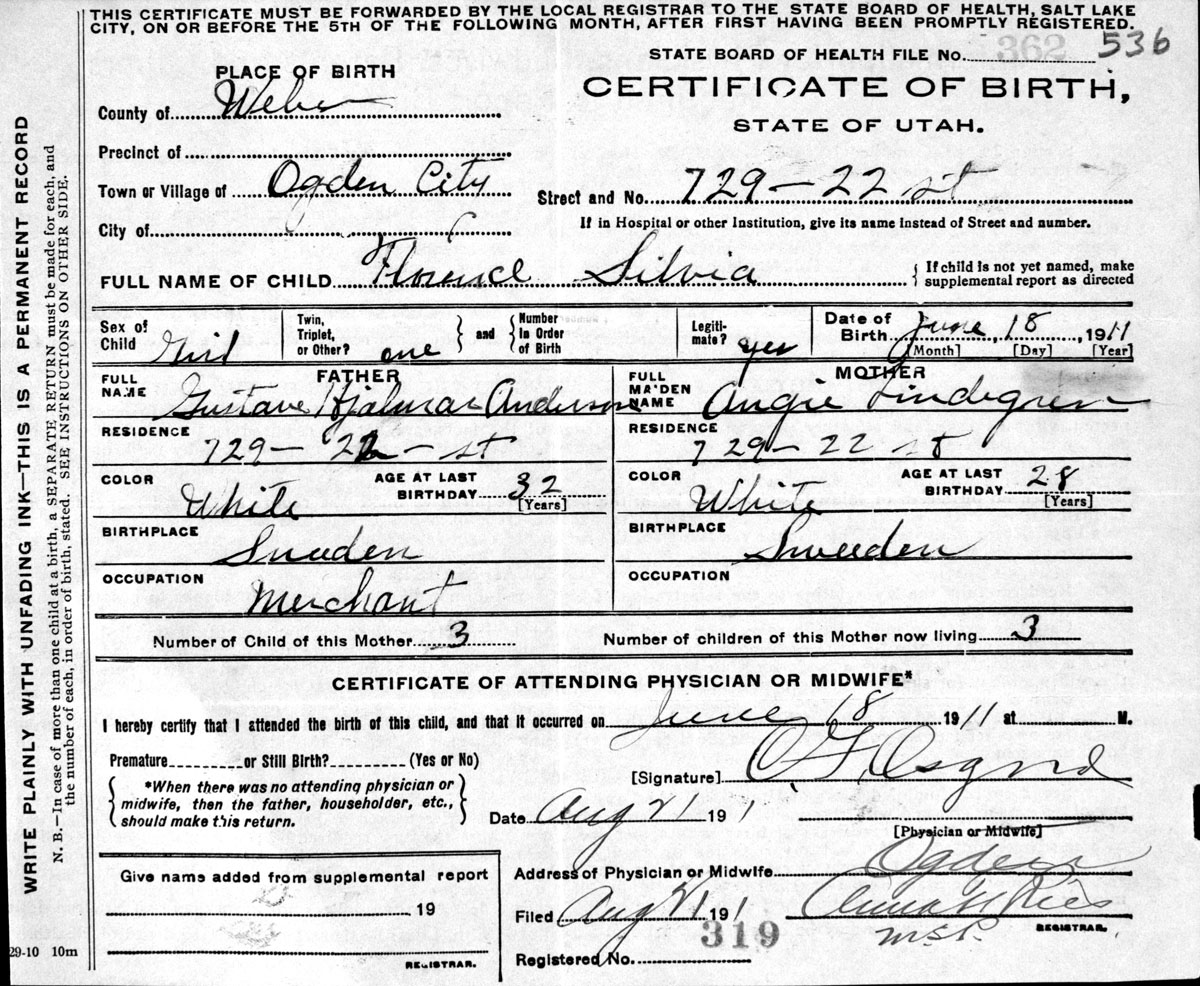 THIS CERTIFICATE MUST BE FORWARDED BY THE LOCAL REGISTRAR TO THE STATE BOARD OF HEALTH, SALT LAKE
CITY, ON OR BEFORE THE 5TH OF THE FOLLOWING MONTH, AFTER FIRST HAVING BEEN PROMPTLY REGISTERED.
STATE BOARD OF HEALTH FILE No. 362 536
PLACE OF BIRTH
CERTIFICATE OF BIRTH,
STATE OF UTAH.
County of Weber
Precinct of
Town or Village of Ogden City
Street and No. 729-22 st
If in Hospital or other Institution, give its name instead of Street and number.
City of
FULL NAME OF CHILD Florence Silvia
{ If child is not yet named, make
supplemental report as directed
Sex of Child Girl
Twin, Triplet, or Other? one } and { Number In Order of Birth
Legiti-mate? yes
Date of Birth June 18, 1911
[Month] [Day] [Year]
FATHER
FULL NAME Gustave Hjalmar Anderson
RESIDENCE 729-22-st
COLOR White
AGE AT LAST BIRTHDAY 32
[Years]
BIRTHPLACE Sweden
OCCUPATION Merchant
MOTHER
FULL MAIDEN NAME Angie Lindegren
RESIDENCE 729-22 st
COLOR White
AGE AT LAST BIRTHDAY 28
[Years]
BIRTHPLACE Sweeden
OCCUPATION
Number of Child of this Mother 3
Number of children of this Mother now living 3
CERTIFICATE OF ATTENDING PHYSICIAN OR MIDWIFE*
I hereby certify that I attended the birth of this child, and that it occurred on June 18 1911 at M.
Premature or Still Birth? (Yes or No)
{ *When there was no attending physician or
midwife, then the father, householder, etc.,
should make this return. }
[Signature] O F Osgood
Date Aug 21 191
[Physician or Midwife]
Address of Physician or Midwife Ogden
Filed Aug 21 191 Anna H Rees
REGISTRAR.
319
Registered No.
Give name added from supplemental report
19
REGISTRAR.
29-10 10m
WRITE PLAINLY WITH UNFADING INK—THIS IS A PERMANENT RECORD
N. B.—In case of more than one child at a birth, a SEPARATE RETURN must be made for each, and
the number of each, in order of birth, stated. SEE INSTRUCTIONS ON OTHER SIDE.